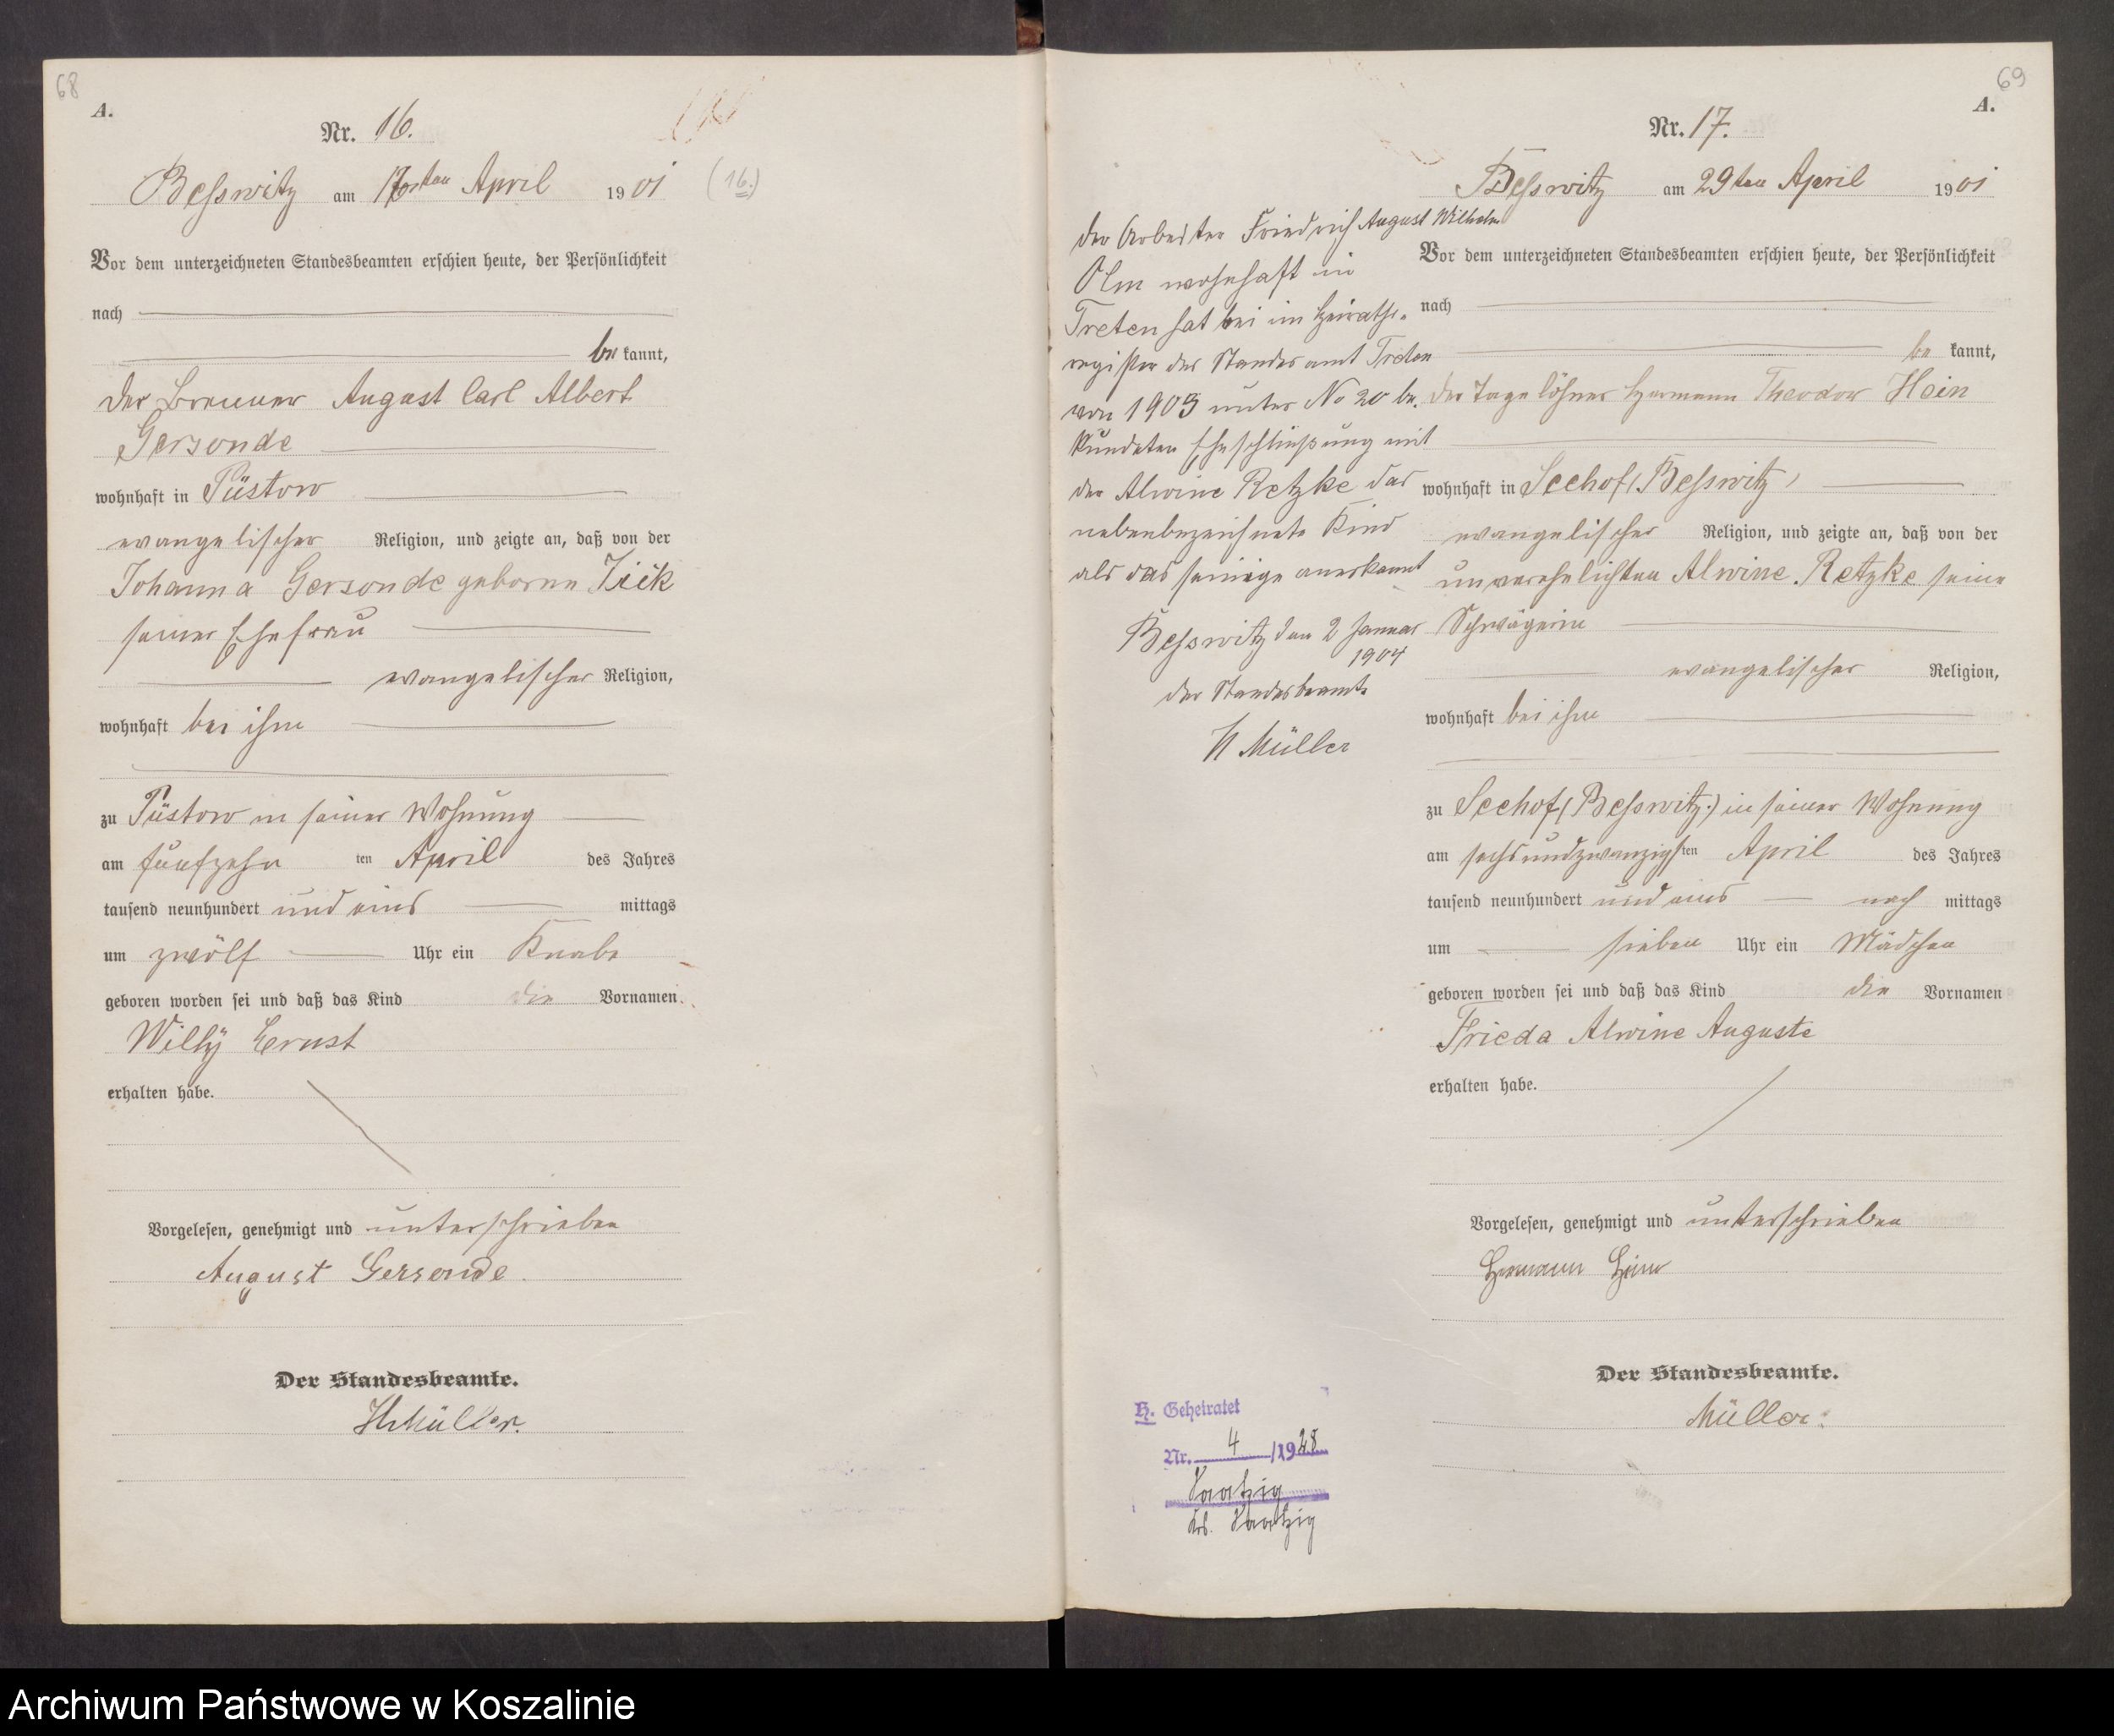 68
A.
Nr. 16.
Besswitz am ten April 1901 (16.)
Vor dem unterzeichneten Standesbeamten erschien heute, der Persönlichkeit
nach
be kannt,
der Brenner August Carl Albert
Gersonde
wohnhaft in Püstow
evangelischer Religion, und zeigte an, daß von der
Johanna Gersonde geborne
seiner Ehefrau
evangelischer Religion,
wohnhaft bei ihm
zu Püstow in seiner Wohnung
am fünfzehn ten April des Jahres
tausend neunhundert und eins mittags
um zwölf Uhr ein Knabe
geboren worden sei und daß das Kind die Vornamen
Willÿ Ernst
erhalten habe.
Vorgelesen, genehmigt und unterschrieben
August Gersonde.
Der Standesbeamte.
HMüller.
69
A.
Nr. 17.
Besswitz am 29ten April 1901
Vor dem unterzeichneten Standesbeamten erschien heute, der Persönlichkeit
nach
be kannt,
der Tagelöhner Hermann Theodor Hein
wohnhaft in Seehof (Besswitz)
evangelischer Religion, und zeigte an, daß von der
unverehelichten Alwine Retzke seine
Schwägerin
evangelischer Religion,
wohnhaft bei ihm
zu Seehof (Besswitz.) in seiner Wohnung
am sechsundzwanzigsten April des Jahres
tausend neunhundert und eins nach mittags
um sieben Uhr ein Mädchen
geboren worden sei und daß das Kind die Vornamen
Frieda Alwine Auguste
erhalten habe.
Vorgelesen, genehmigt und unterschrieben
Hermann Hein
Der Standesbeamte.
Müller.
der Arbeiter Friedrich August Wilhelm
Olm wohnhaft in
Treten hat bei im Heiraths-
register des Standesamt Treten
von 1903 unter No 20 be-
kundeten Eheschließung mit
der Alwine Retzke das
nebenbezeichnete Kind
als das seinige anerkannt
Besswitz den 2 Januar
1904
der Standesbeamte
H Müller
H. Geheiratet
Nr. 4 /1928
Saatzig
Krs. Saatzig
Archiwum Państwowe w Koszalinie